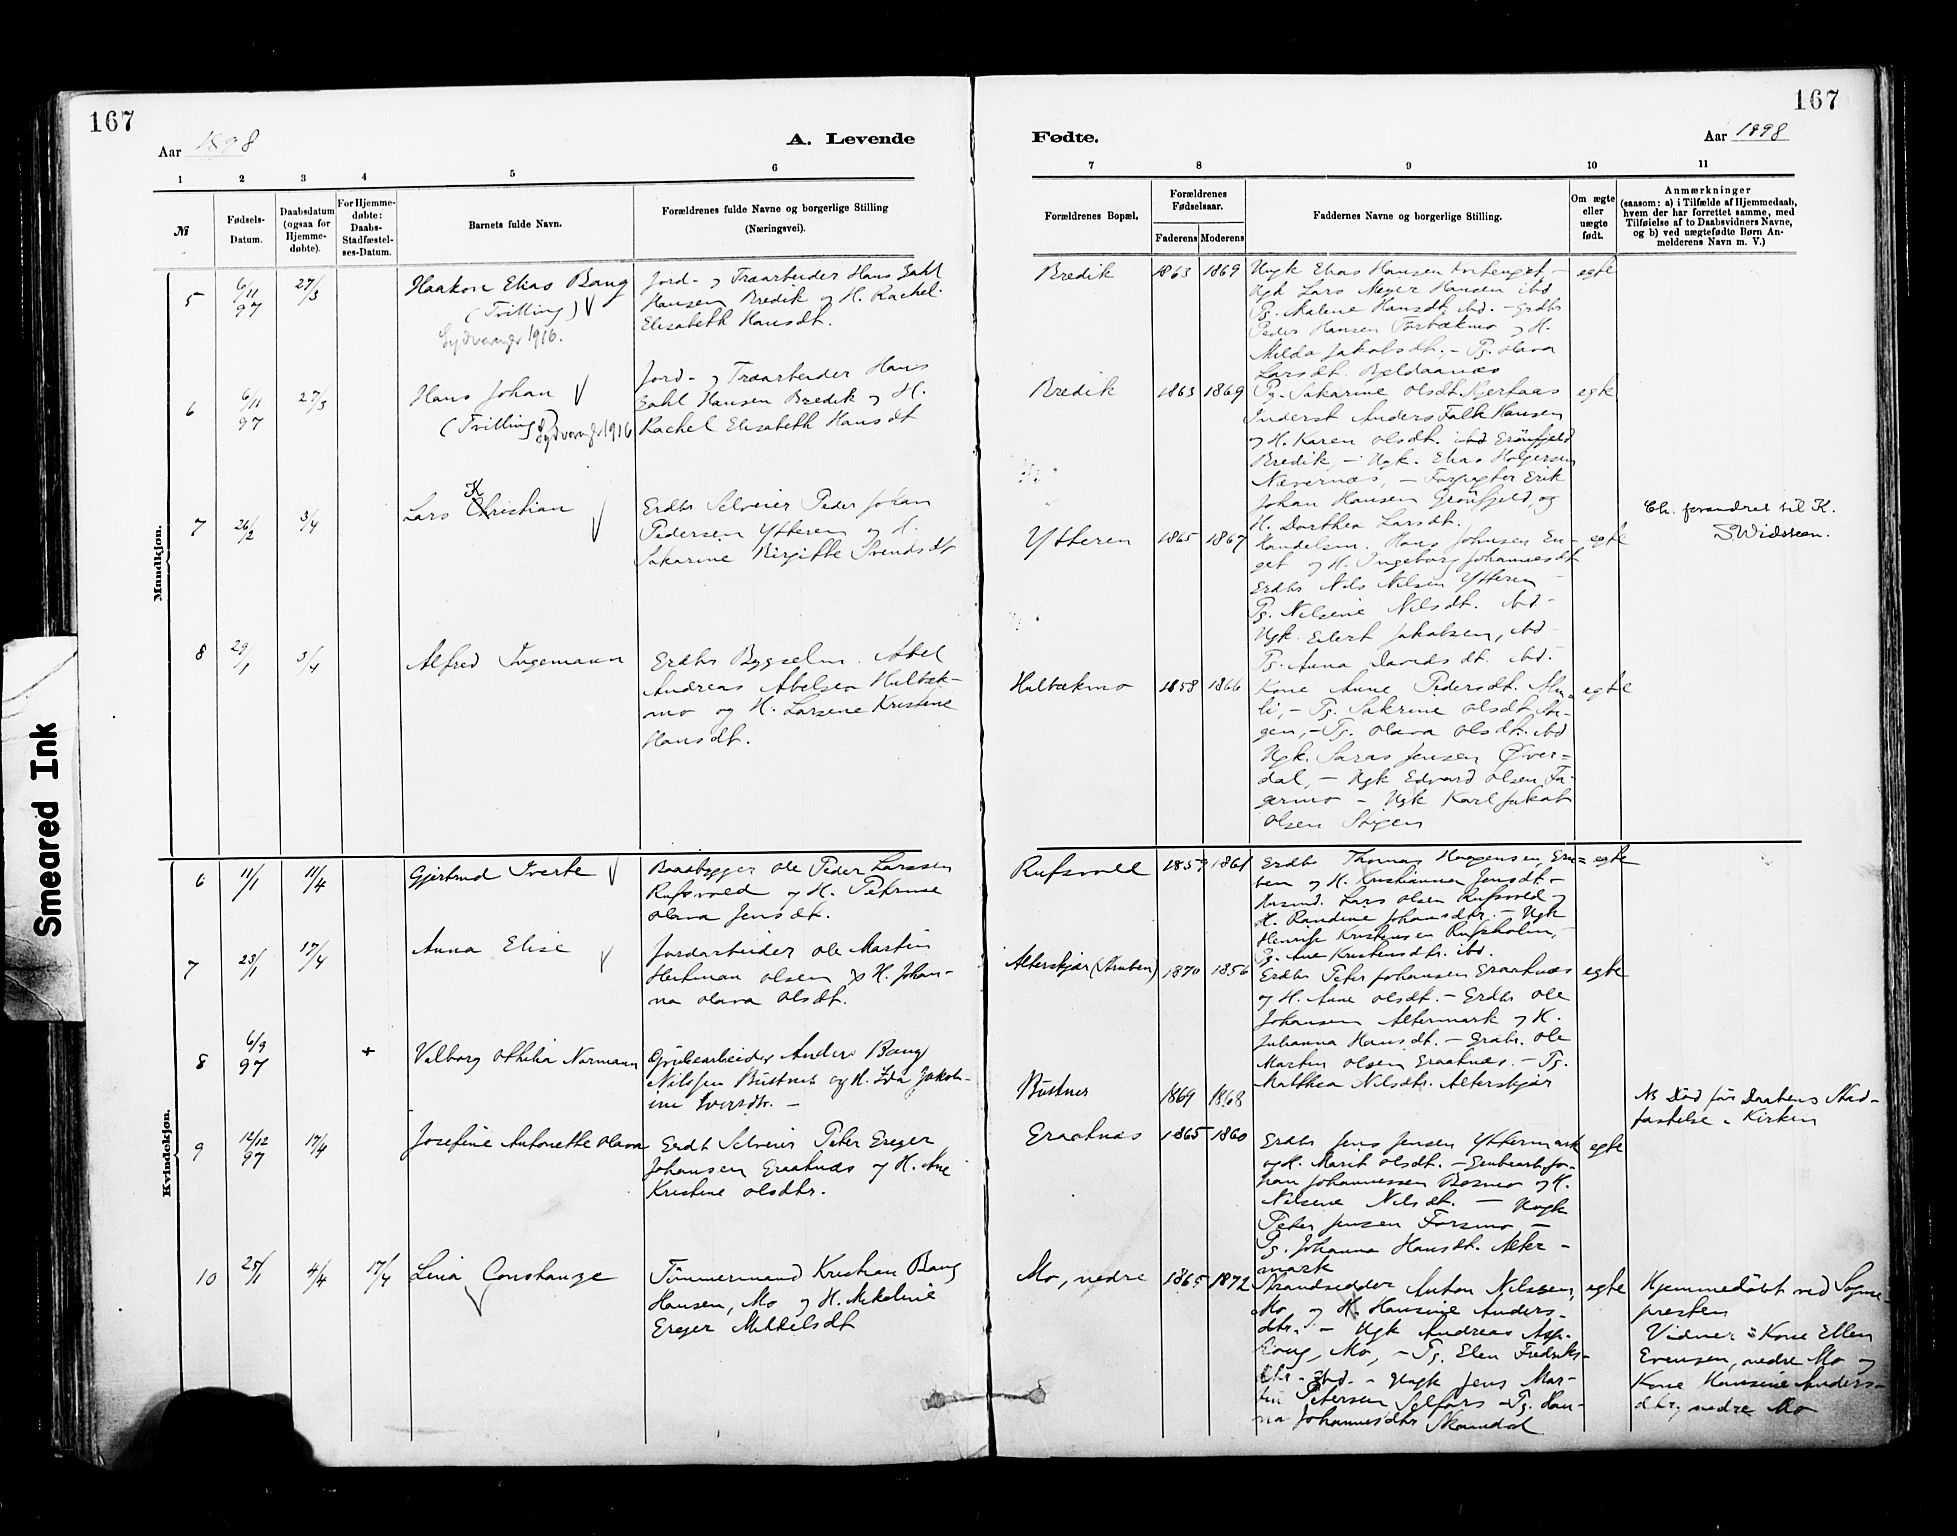 167
167
Aar 1898
A. Levende
Fødte.
Aar 1898
1
2
3
4
5
6
7
8
9
10
11
№
Fødsels-
Datum.
Daabsdatum
(ogsaa for
Hjemme-
døbte).
For Hjemme-
døbte:
Daabs-
Stadfæstel-
ses-Datum.
Barnets fulde Navn.
Forældrenes fulde Navne og borgerlige Stilling
(Næringsvei).
Forældrenes Bopæl.
Forældrenes
Fødselsaar.
Faderens
Moderens
Faddernes Navne og borgerlige Stilling.
Om ægte
eller
uægte
født.
Anmærkninger
(saasom: a) i Tilfælde af Hjemmedaab,
hvem der har forrettet samme, med
Tilføielse af to Daabsvidners Navne,
og b) ved uægtefødte Børn An-
melderens Navn m. V.)
Mandkjøn.
5
6/11
97
27/3
Haakon Elias Bang
(Tvilling)
Sydvaranger 1916.
Jord- og Træarbeider Hans Dahl
Hansen Bredik og H. Rachel
Elisabeth Hansdt.
Bredik
1863
1869
Ungk Elias Hansen
Ugk Lars Meyer Hansen ibd
Pg. Malene Hansdt. ibd. - Grdbr
Peder Hansen Forbækmo og H.
Milda Jakobsdt. - Pg. Olava
Larsdt.
egte
6
6/11
97
27/3
Hans Johan
(Tvilling) Sydvaranger 1916
Jord- og Træarbeider Hans
Dahl Hansen Bredik og H.
Rachel Elisabeth Hansdt
Bredik
1863
1869
Pg. Sakarine Olsdt.
Inderst Anders Falk Hansen
og H. Karen Olsdt. ibd Grønfjeld
Bredik, - Ugk. Elias Holgersen
Nævernæs, - Forpagter Erik
Johan Hansen Grønfjeld, og
H. Dorthea Larsdt.
egte
7
26/2
3/4
K
Lars Christian
Grdbr Selveier Peder Johan
Pedersen Ytteren og H.
Sakarine Birgitte Svendsdt
Ytteren
1865
1867
Handelsm. Hans Johnsen En-
get og H. Ingeborg Johannesdt
Grdbr Nils Nilsen Ytteren -
Pg. Nilsine Nilsdt. ibd -
Ugk. Eilert Jakobsen, ibd -
Pg. Anna Davidsdt. ibd.
egte
Ch. forandret til K.
SWidsteen.
8
29/1
3/4
Alfred Ingemann
Grdbr Bygselm. Abel
Andreas Abelsen Hulbæk-
mo og H. Larsene Kristine
Hansdt.
Hulbækmo
1858
1866
Kone Anne Pedersdt.
li, - Pg. Sakrine Olsdt.
gen, - Pg. Olava Olsdt. ibd
Ugk. Saras Jensen Øver-
dal, - Ugk Edvard Olsen Fa-
germo - Ugk Karl Jakob
Olsen
egte
Kvindekjøn.
6
11/1
11/4
Gjertrud Iverte
Baadbygger Ole Peder Larssen
Rufsvold og H. Petrine
Olava Jensdt.
Rufsvold
1857
1861
Grdbr Thomas Haagensen
og H. Kristianna Jensdt -
Husmd. Lars Olsen Rufsvold og
H. Randine Johansdtr. - Ugk
Henrik Kristensen Rufsholm, -
Pg. Ane Kristensdtr. ibd.
egte
7
23/1
17/4
Anna Elise
Jordarbeider Ole Martin
Herman Olsen og H. Johan-
na Olava Olsdt.
Alterskjær (Struben)
1870
1856
Grdbr Peter Johansen Graatnæs
og H. Anne Olsdt. - Grdbr Ole
Johansen Altermark og H.
Julianna Hansdt. - Grdbr. Ole
Martin Olsen Graatnæs. - Pg.
Matthea Nilsdtr. Alterskjær
egte
8
6/9
97
+
Valborg Othilia Normann
Grubearbeider Anders Bang
Nilssen Büstnes og H. Ida Jakob-
ine Iversdtr. -
Büstnes
1869
1868
Nb Død før Daabens Stad-
fæstelse i Kirken
9
12/12
97
17/4
Josefine Antonette Olava
Grdbr Selveier Peter Ereger
Johansen Graatnæs og H. Ane
Kristine Olsdtr.
Graatnæs
1865
1860
Grdbr Jens Jensen Yttermark
og H. Marit Olsdt. - Grubearb. Jo-
han Johannessen Bosmo og H.
Nilsine Nilsdt. - Ungk
Peter Jensen Forsmo -
Pg. Johanna Hansdt. Alter-
mark
egte
10
25/1
4/4
17/4
Lina Constanze
Tømmermand Kristian Bang
Hansen, Mo og H. Mekeline
Ereger Mikkelsdt
Mo, nedre
1865
1872
Strandsidder Anton Nilssen,
Mo, og H. Hansine Anders-
dtr. - Ugk Andreas Asp-
houg, Mo, - Pg. Elen Fredriks-
dtr - ibd. - Ungk Jens Mar-
tin Petersen Selfors - Pg. Han-
na Johannesdtr Skamdal
egte
Hjemmedøbt ved Sogne-
presten
Vidner: Kone Ellen
Evensen, nedre Mo og
Kone Hansine Anders-
dtr, nedre Mo
Smeared Ink